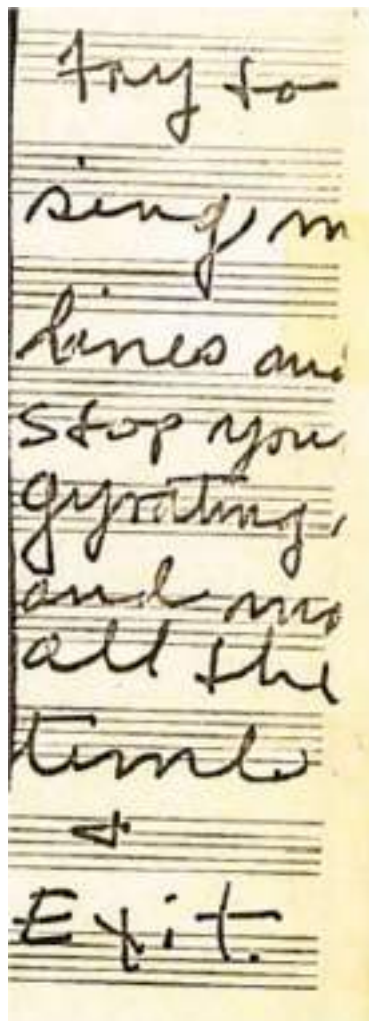 try to
sing, m
lines an
stop you
gyrating,
and mo
all the
time
&
Exit.